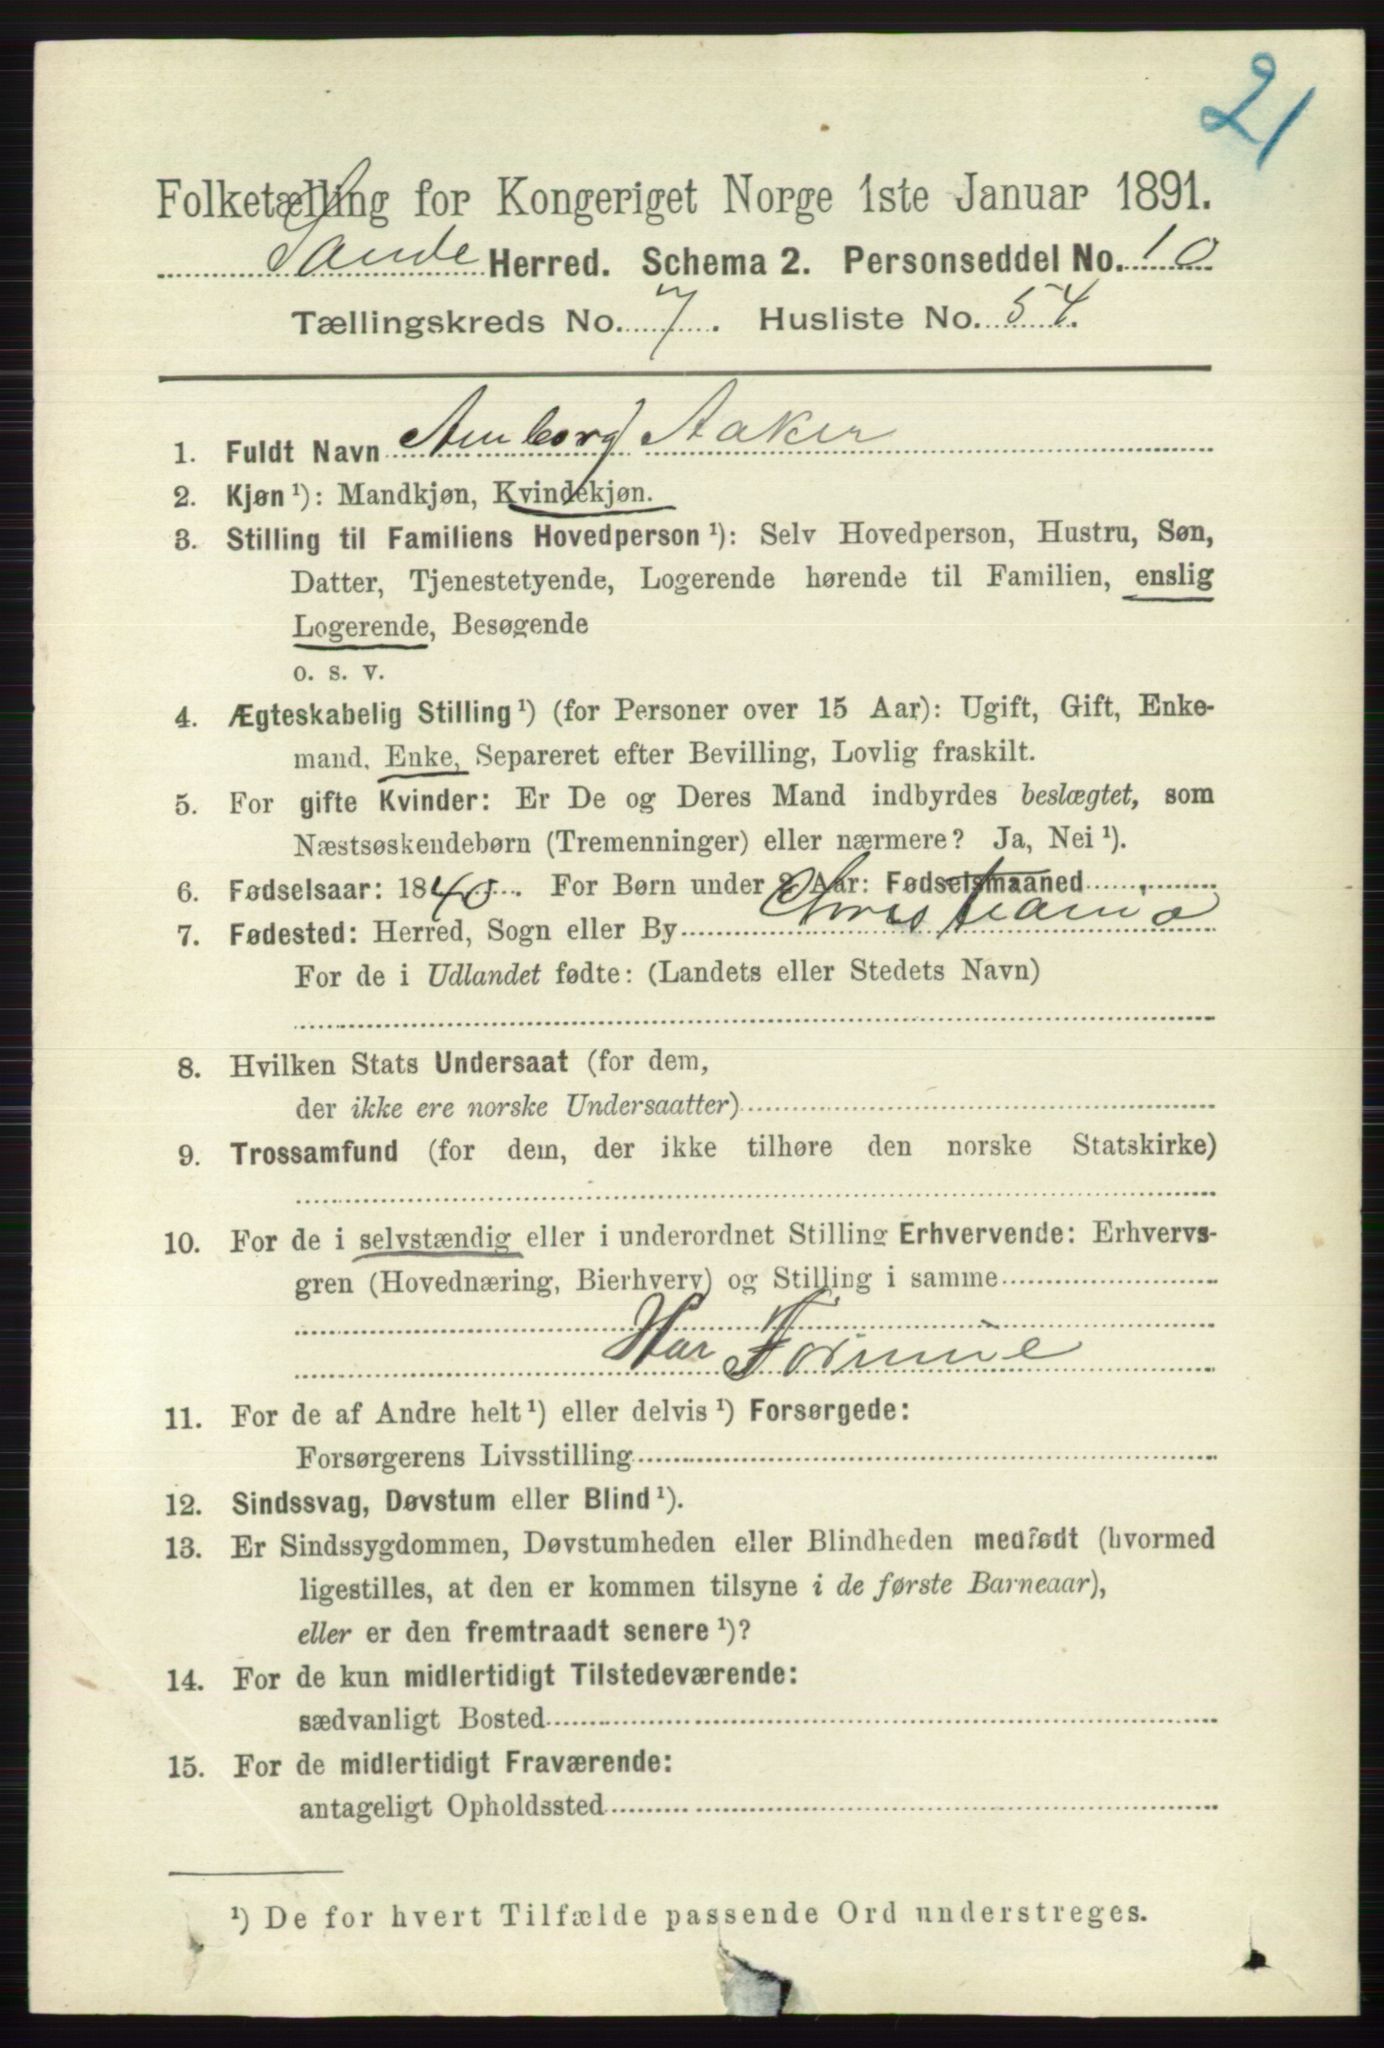 21
Folketælling for Kongeriget Norge 1ste Januar 1891.
Sande Herred. Schema 2. Personseddel No. 10
Tællingskreds No. 7. Husliste No. 54.
1. Fuldt Navn Amborg Aaker
2. Kjøn ¹): Mandkjøn, Kvindekjøn.
3. Stilling til Familiens Hovedperson ¹): Selv Hovedperson, Hustru, Søn,
Datter, Tjenestetyende, Logerende hørende til Familien, enslig
Logerende, Besøgende
o. s. v.
4. Ægteskabelig Stilling ¹) (for Personer over 15 Aar): Ugift, Gift, Enke-
mand, Enke, Separeret efter Bevilling, Lovlig fraskilt.
5. For gifte Kvinder: Er De og Deres Mand indbyrdes beslægtet, som
Næstsøskendebørn (Tremenninger) eller nærmere? Ja, Nei ¹).
6. Fødselsaar: 1840. For Børn under 2 Aar: Fødselsmaaned
7. Fødested: Herred, Sogn eller By Christiania
For de i Udlandet fødte: (Landets eller Stedets Navn)
8. Hvilken Stats Undersaat (for dem,
der ikke ere norske Undersaatter)
9. Trossamfund (for dem, der ikke tilhøre den norske Statskirke)
10. For de i selvstændig eller i underordnet Stilling Erhvervende: Erhvervs-
gren (Hovednæring, Bierhverv) og Stilling i samme
Har Formue
11. For de af Andre helt ¹) eller delvis ¹) Forsørgede:
Forsørgerens Livsstilling
12. Sindssvag, Døvstum eller Blind ¹).
13. Er Sindssygdommen, Døvstumheden eller Blindheden medfødt (hvormed
ligestilles, at den er kommen tilsyne i de første Barneaar),
eller er den fremtraadt senere ¹)?
14. For de kun midlertidigt Tilstedeværende:
sædvanligt Bosted
15. For de midlertidigt Fraværende:
antageligt Opholdssted
¹) De for hvert Tilfælde passende Ord understreges.